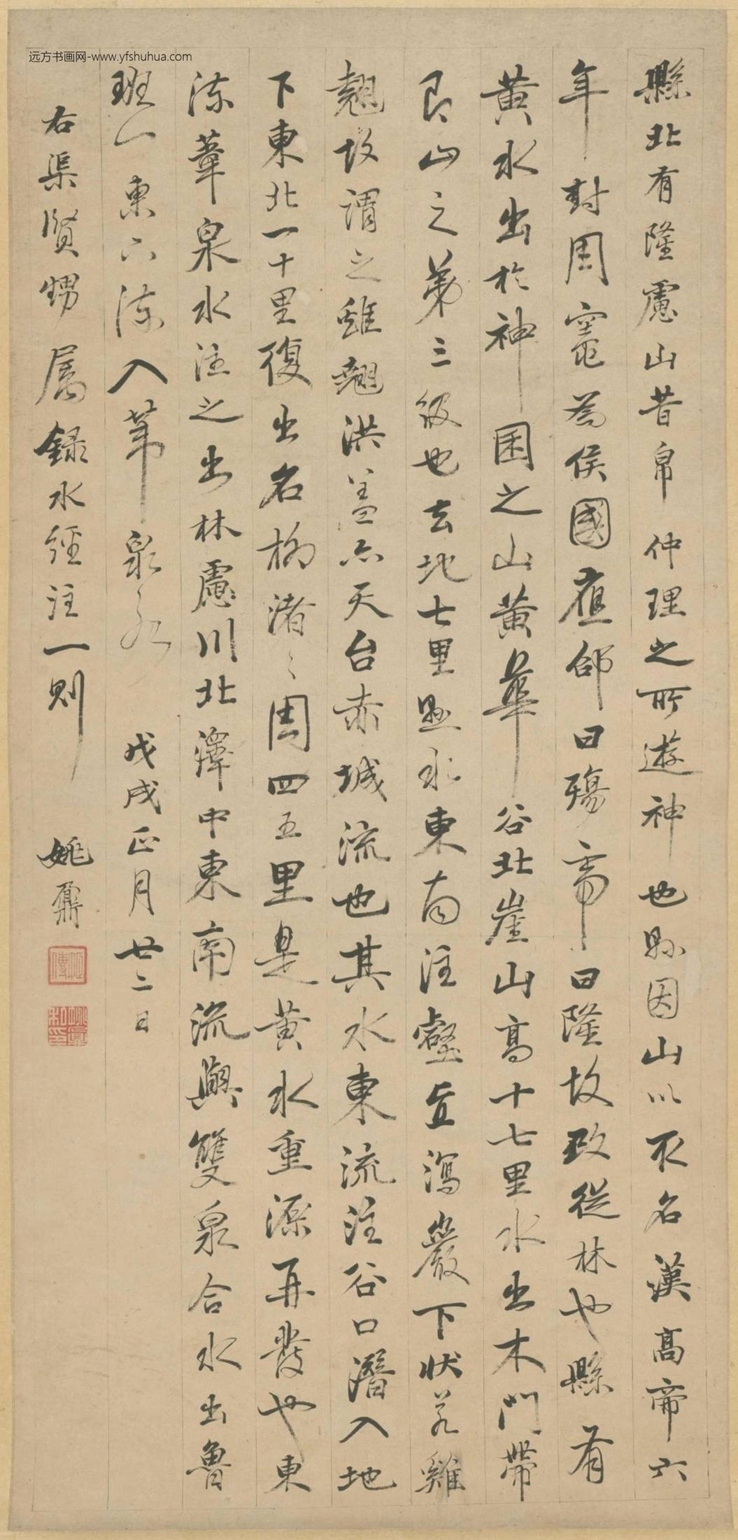 远方书画网-www.yfshuhua.com
縣北有隆慮山昔帛仲理之所遊神也縣因山以取名漢高帝六
年封周竈為侯國應邵曰殤帝曰隆故改從林也縣有
黃水出於神囷之山黃華谷北崖山高十七里水出木門帶
即山之第三級也去地七里縣水東南注壑直瀉巖下狀若雞
翹故謂之雞翹洪蓋亦天台赤城流也其水東流注谷口潛入地
下東北一十里復出名柳渚〻周四五里是黃水重源再發也東
流葦泉水注之出林慮川北澤中東南流與雙泉合水出魯
班門東下流入葦泉水 戊戌正月廿二日
右渠賢甥屬錄水經注一則 姚鼐